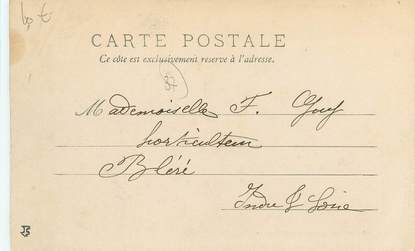 CARTE POSTALE
Ce côté est exclusivement réservé à l'adresse.
37
Mademoiselle F. Guy
horticulteur
Bléré
Indre & Loire